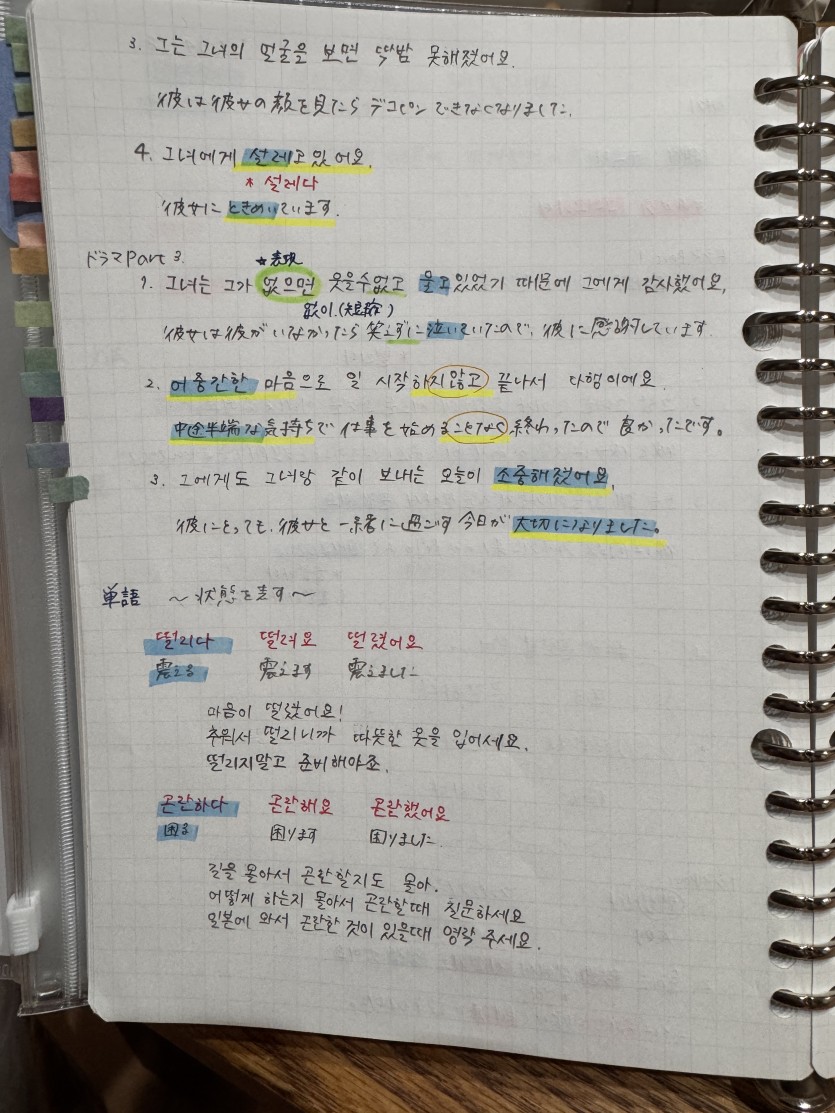 3. 그는 그녀의 얼굴을 보면 딱밤 못해졌어요.
彼は彼女の顔を見たら デコピン できなくなりました.
4. 그녀에게 설레고 있어요.
* 설레다
彼女に ときめいています.
ドラマPart 3.
★表現
1. 그녀는 그가 없으면 웃을수없고 울고있었기 때문에 그에게 감사했어요.
없이.(短縮)
彼女は彼がいなかったら 笑えずに泣いていたので, 彼に感謝しています.
2. 어중간한 마음으로 일 시작하지않고 끝나서 다행이에요.
中途半端な気持ちで 仕事を始めることなく終わったので 良かったです。
3. 그에게도 그녀랑 같이 보내는 오늘이 소중해졌어요.
彼にとっても、彼女と一緒に過ごす 今日が 大切になりました。
単語 ～状態を表す～
떨리다 떨려요 떨렸어요
震える 震えます 震えました
마음이 떨렸어요!
추워서 떨리니까 따뜻한 옷을 입어세요.
떨리지말고 준비해야죠.
곤란하다 곤란해요 곤란했어요
困る 困ります 困りました.
길을 몰아서 곤란할지도 몰아.
어떻게 하는지 몰아서 곤란할때 질문하세요
일본에 와서 곤란한 것이 있을때 영락 주세요.